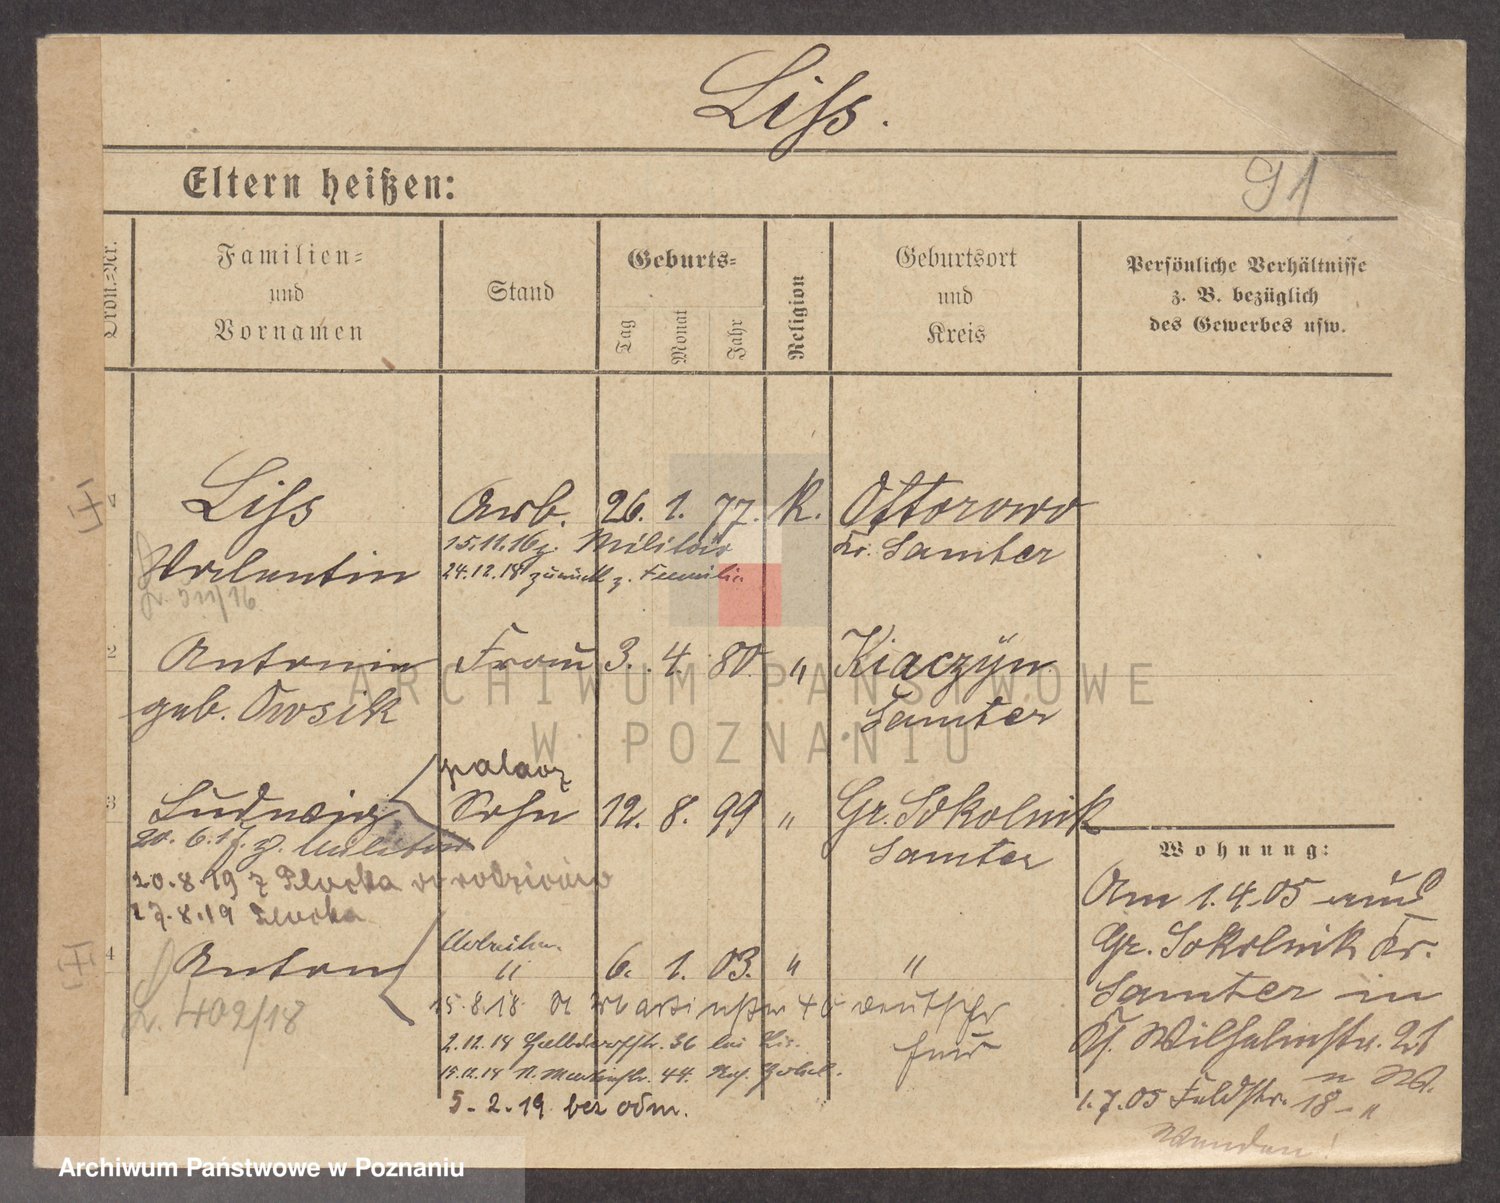 Liss.
Eltern heißen:
91
Ordn.-Nr.
Familien-
und
Vornamen
Stand
Geburts-
Tag
Monat
Jahr
Religion
Geburtsort
und
Kreis
Persönliche Verhältnisse
z. B. bezüglich
des Gewerbes usw.
1 Liss Arb. 26. 1. 77. K. Ottorowo
15.11.16 z. Militär Kr. Samter
Valentin 24.12.18 zurück z. Familie
2 Antonie Frau 3. 4. 80. " Kiączyn
geb. Owsik Samter
palacz
3 Ludwig Sohn 12. 8. 99 " Gr. Sokolnik
20. 6. 17. z. Militär Samter
20.8.19 z Plocka
27.8.19
4 Anton " 6. 1. 03. " "
402/18
15.8.18
2.12.18 36 bei
44.
5.2.19 bez odm.
Wohnung:
Am 1.4.05 aus
Gr. Sokolnik Kr.
Samter in
Wilhelmstr. 21
1.7.05 Feldstr. 18 "
Wenden!
ARCHIWUM PAŃSTWOWE
W POZNANIU
Archiwum Państwowe w Poznaniu